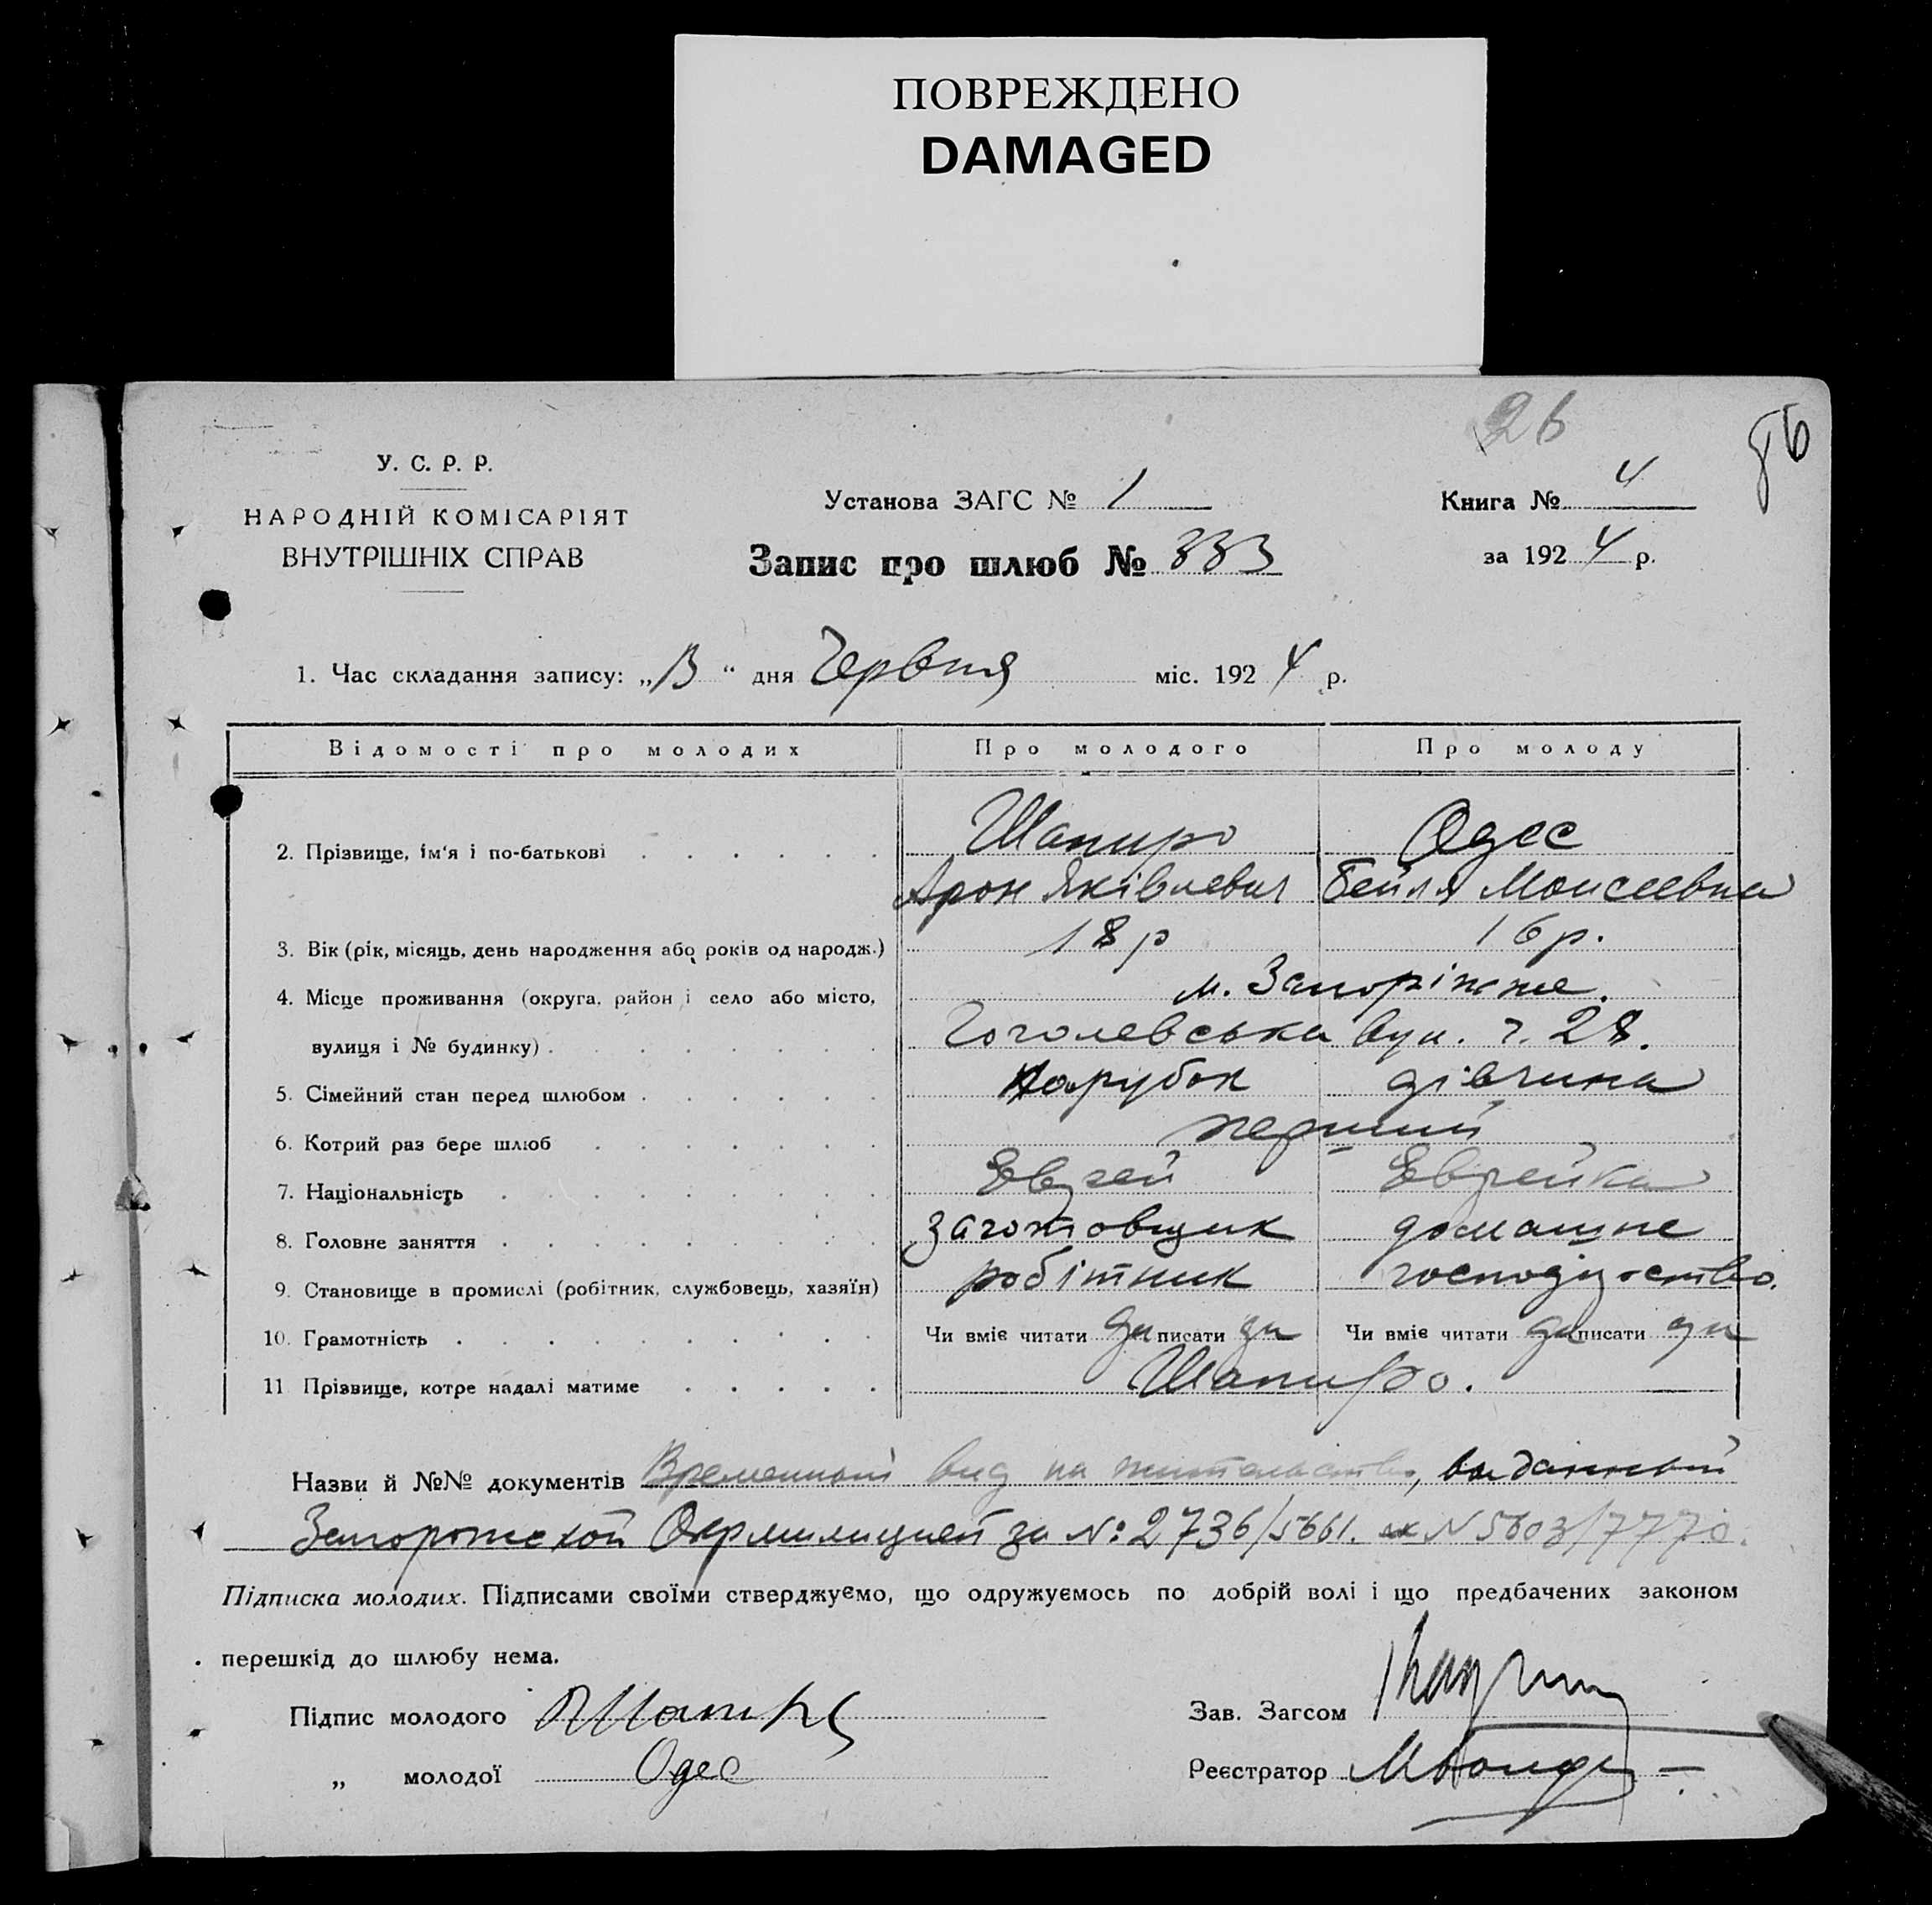 ПОВРЕЖДЕНО
DAMAGED
26
У. С. Р. Р.
НАРОДНІЙ КОМІСАРІЯТ
ВНУТРІШНІХ СПРАВ
Установа ЗАГС № 1
Книга № 4
Запис про шлюб № 333
за 1924 р.
1. Час складання запису: „13“ дня Червня міс. 1924 р.
Відомості про молодих Про молодого Про молоду
2. Прізвище, ім'я і по-батькові Шапиро Одес
Арон Яківлевич Бейля Моисеевна
3. Вік (рік, місяць, день народження або років од народж.) 18 р 16 р.
4. Місце проживання (округа, район і село або місто, м. Запоріжже.
вулиця і № будинку) Гоголевська вул. ч. 28.
5. Сімейний стан перед шлюбом парубок дівчина
6. Котрий раз бере шлюб перший
7. Національність Еврей Еврейка
8. Головне заняття заготовщик домашнє
9. Становище в промислі (робітник, службовець, хазяїн) робітник господарство.
10. Грамотність Чи вміє читати да писати да Чи вміє читати да писати да
11 Прізвище, котре надалі матиме Шапиро.
Назви й №№ документів Временный вид на жительство, выданный
Запорожской Окрмилицией за №: 2736/5661. и N 5603/7770.
Підписка молодих. Підписами своїми стверджуємо, що одружуємось по добрій волі і що предбачених законом
перешкід до шлюбу нема.
Підпис молодого АШапиро
Зав. Загсом
„ молодої Одес
Реєстратор